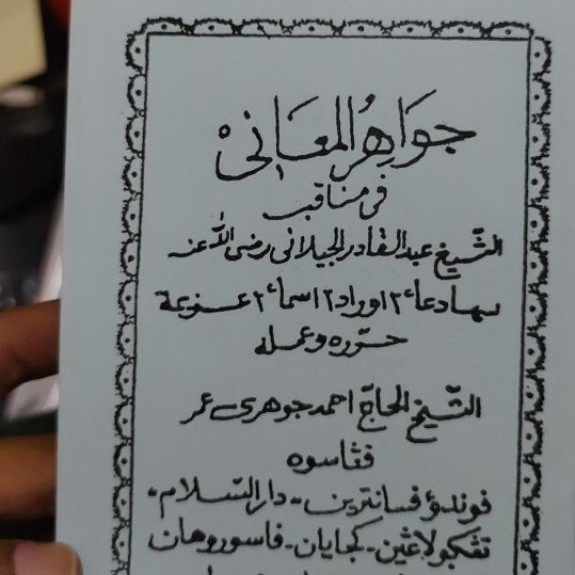 جَوَاهِرُ المَعَانِيْ
فى مناقب
الشّيخ عبد القادر الجيلانى رضى الله عنه
بهادعاء٢ اوراد٢ اسماء٢
حرّره وعمله
الشّيخ الحاجّ احمد جوهرى عمر
فڠاسوه
فوندوٴ فسانترين - دار السّلام -
تڠكولاڠين - كجايان - فاسوروهان